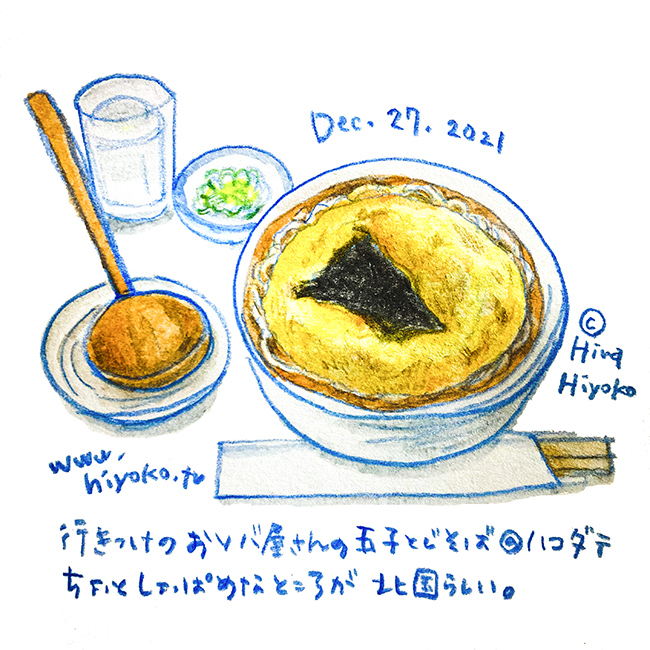 Dec. 27. 2021
© Hira
Hiyoko
www.
hiyoko.tv
行きつけのおソバ屋さんの玉子とじそば@ハコダテ
ちょいとしょっぱめなところが北国らしい。